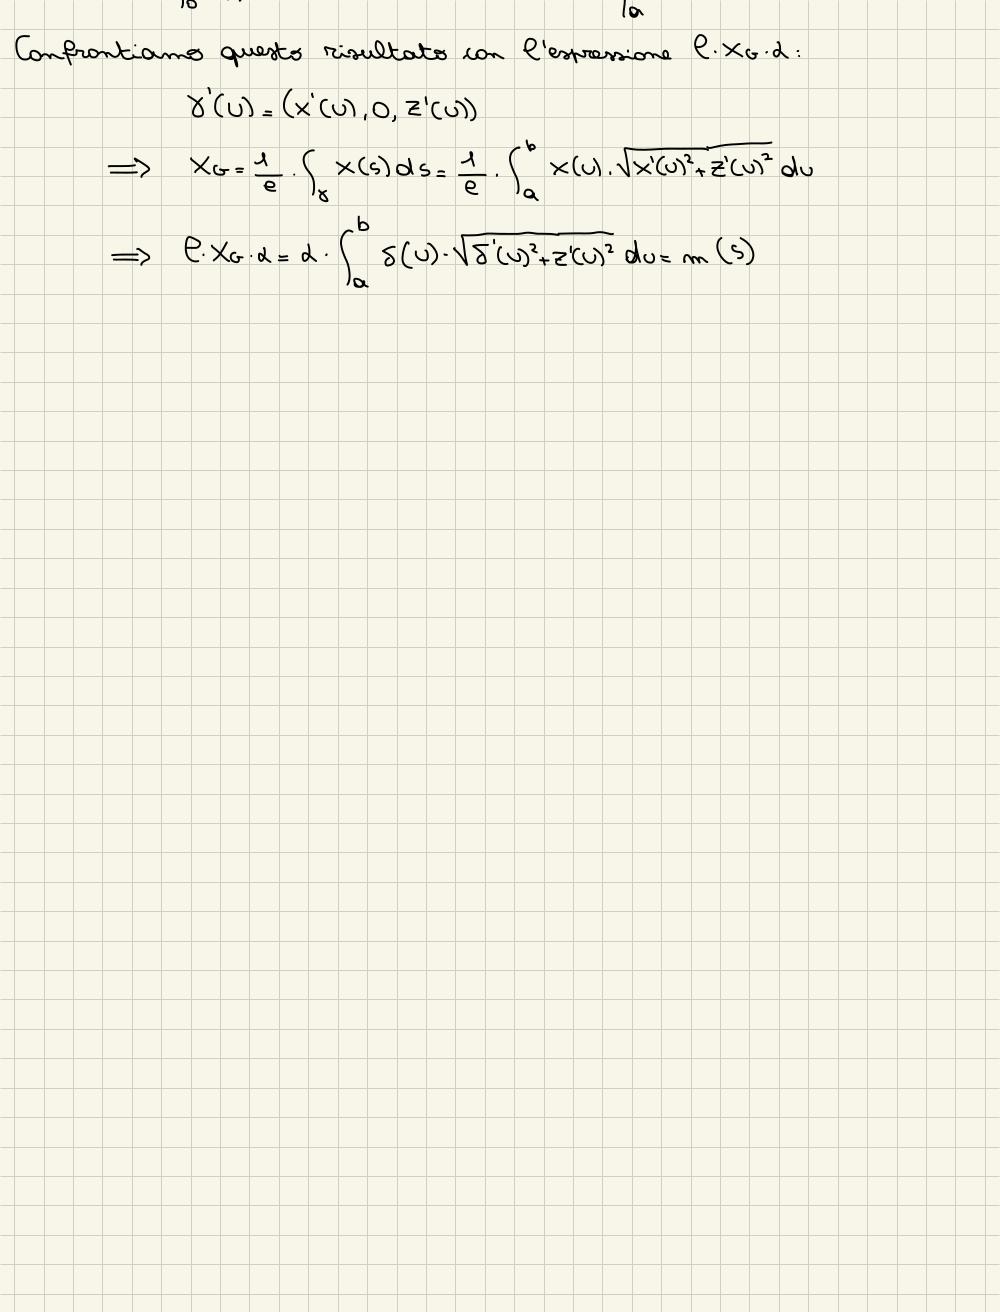 Confrontiamo questo risultato con l'espressione ℓ·x_G·α:
γ'(u) = (x'(u), 0, z'(u))
⟹ x_G = 1/ℓ · ∫_γ x(s) ds = 1/ℓ · ∫_a^b x(u)·√(x'(u)²+z'(u)²) du
⟹ ℓ·x_G·α = α · ∫_a^b δ(u)·√(δ'(u)²+z'(u)²) du = m (S)